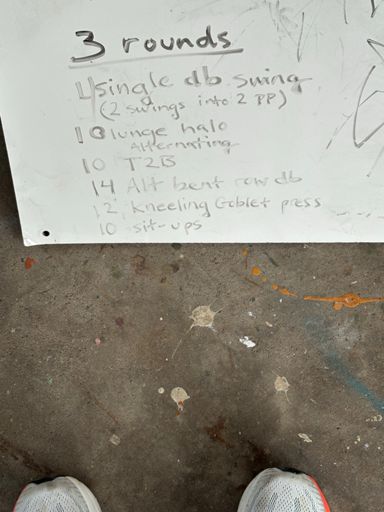 3 rounds
4 single db swing
(2 swings into 2 PP)
10 lunge halo
Alternating
10 T2B
14 Alt bent row db
12 Kneeling Goblet press
10 sit-ups